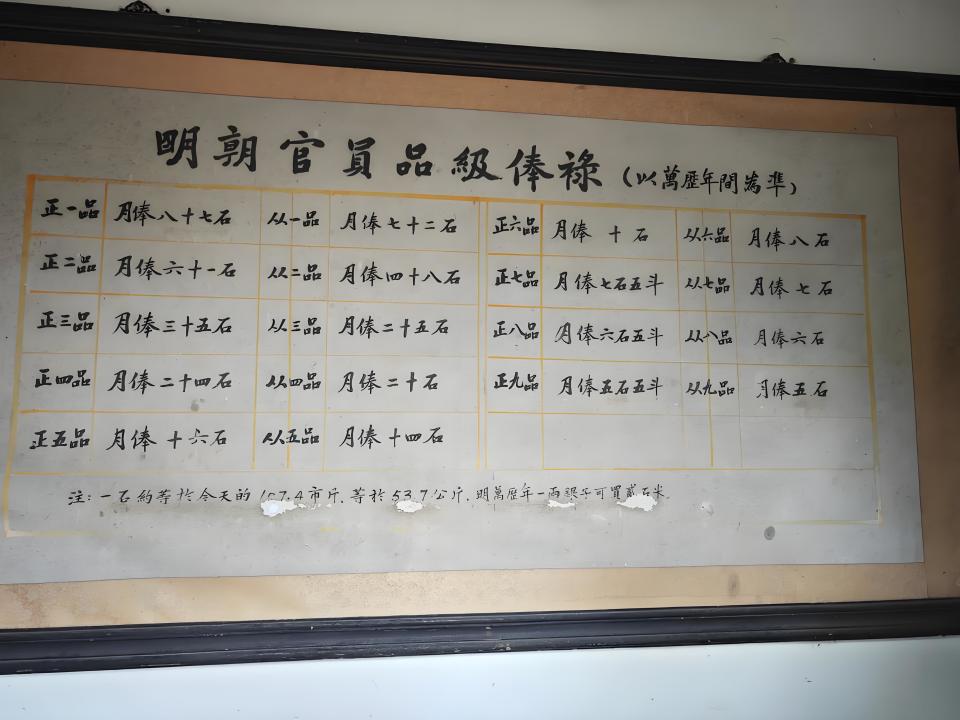 明朝官員品級俸祿（以萬歷年間為準）
正一品 月俸八十七石 从一品 月俸七十二石 正六品 月俸 十石 从六品 月俸八石
正二品 月俸六十一石 从二品 月俸四十八石 正七品 月俸七石五斗 从七品 月俸七石
正三品 月俸三十五石 从三品 月俸二十五石 正八品 月俸六石五斗 从八品 月俸六石
正四品 月俸二十四石 从四品 月俸二十石 正九品 月俸五石五斗 从九品 月俸五石
正五品 月俸十六石 从五品 月俸十四石
注：一石約等於今天的107.4市斤，等於53.7公斤，明萬歷年一兩銀子可買貳石米